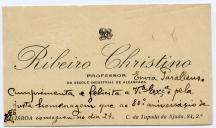 Ribeiro Christino
PROFESSOR
DA ESCOLA INDUSTRIAL DE ALCANTARA
Envia Parabens.
Cumprimenta e felicita a V.ª Ex.ª pela
justa homenagem que ao 80º aniversario de
LISBOA consagram no dia 24.
C. da Tapada da Ajuda, 84, 2.º